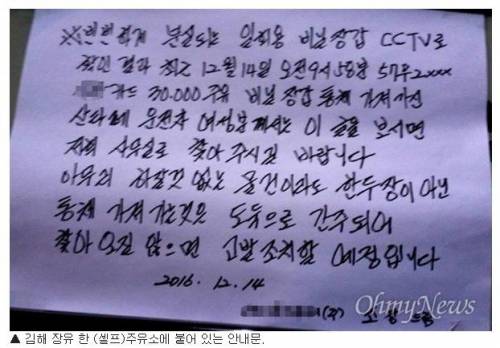 ※번번하게 분실되는 일회용 비닐장갑 CCTV로
확인 결과 최근 12월14일 오전9시58분 57우2xxx
카드 30.000주유 비닐장갑 통째 가져가신
산타페 운전자 여성분께서는 이 글을 보시면
저희 사무실로 찾아 주시길 바랍니다
아무리 하잘것 없는 물건이라도 한두장이 아닌
통째 가져가는것은 도둑으로 간주되어
찾아오질 않으면 고발조치할 예정입니다
2016. 12. 14
(주) 소장 드림
OhmyNews
▲ 김해 장유 한 (셀프)주유소에 붙어 있는 안내문.